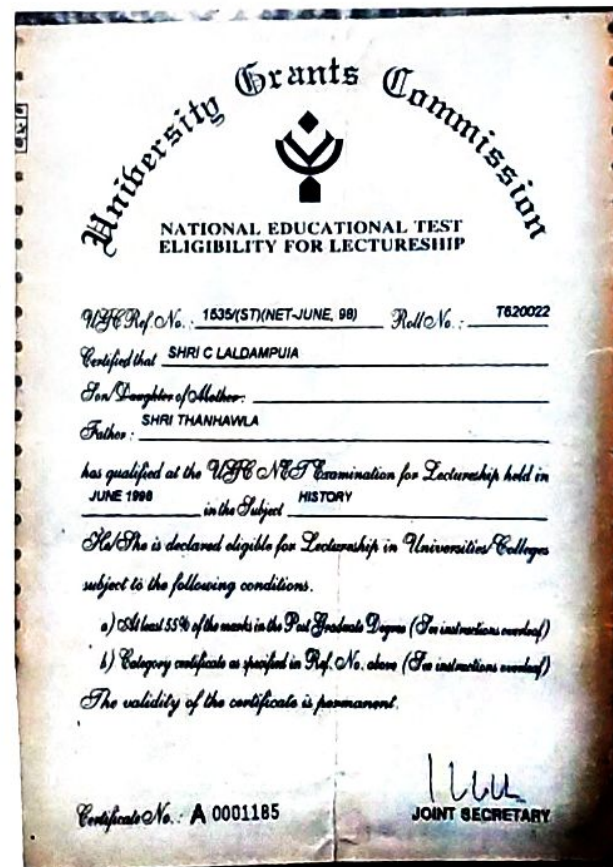 University Grants Commission
NATIONAL EDUCATIONAL TEST
ELIGIBILITY FOR LECTURESHIP
UGC Ref. No. : 1535/(ST)(NET-JUNE, 98) Roll No. : T620022
Certified that SHRI C LALDAMPUIA
Son/Daughter of Mother :
Father : SHRI THANHAWLA
has qualified at the UGC NET Examination for Lectureship held in
JUNE 1998 in the Subject HISTORY
He/She is declared eligible for Lectureship in Universities/Colleges
subject to the following conditions.
a) At least 55% of the marks in the Post Graduate Degree (See instructions overleaf)
b) Category certificate as specified in Ref. No. above (See instructions overleaf)
The validity of the certificate is permanent.
Certificate No. : A 0001185
JOINT SECRETARY